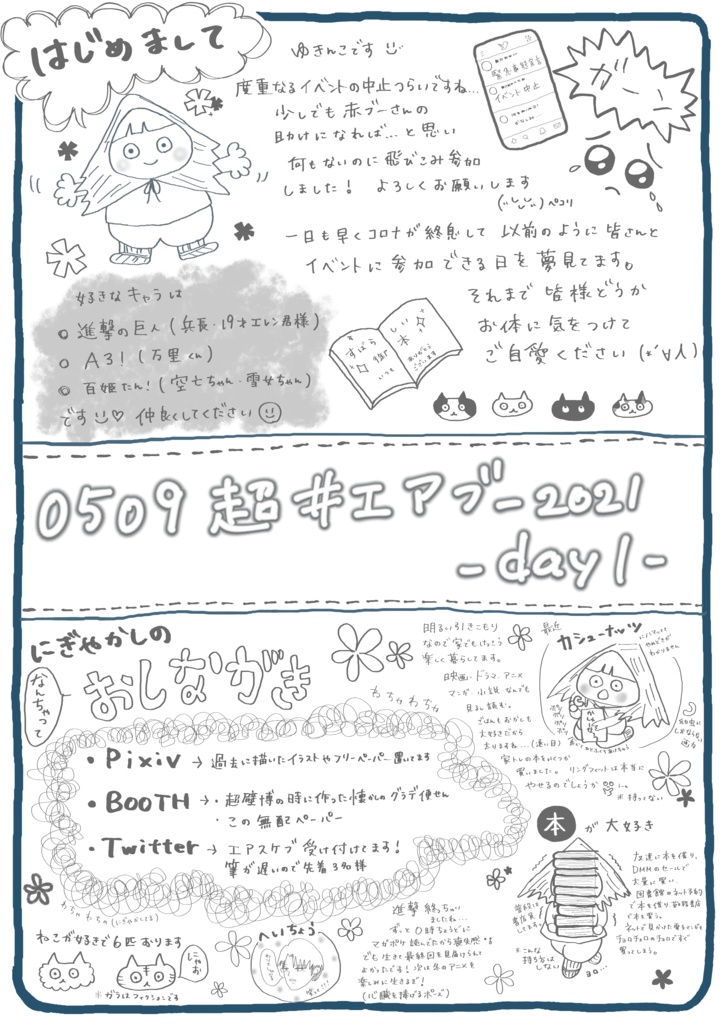 はじめまして
ゆきんこです
度重なるイベントの中止つらいですね…
少しでも赤ブーさんの
助けになれば…と思い
何もないのに飛びこみ参加
しました! よろしくお願いします
ペコリ
緊急事態宣言
イベント中止
ガーン
一日も早くコロナが終息して 以前のように皆さんと
イベントに参加できる日を夢見てます。
それまで 皆様どうか
お体に気をつけて
ご自愛ください (*´∀人)
好きなキャラは
進撃の巨人(兵長・19才エレン君様)
A3!(万里くん)
百姫たん!(空七ちゃん・雪女ちゃん)
です♡ 仲良くしてください
すばら
しい
御
本
いつも
ありがとう
ございます
0509 超#エアブー2021
-day1-
にぎやかしの
なんちゃって
おしながき
わちゃわちゃ
・Pixiv → 過去に描いたイラストやフリーペーパー置いてます
・BOOTH → ・超壁博の時に作った懐かしのグラデ便せん
・この無配ペーパー
・Twitter → エアスケブ受け付けてます!
筆が遅いので先着3名様
わちゃわちゃ(にぎやかしてる)
ねこが好きで6匹おります
にゃお
※ガラはフィクションです
へいちょう
明るい引きこもり
なので家でもけっこう
楽しく暮らしてます。
映画・ドラマ・アニメ
マンガ・小説 なんでも
見るし読む。
ごはんもおかしも
大好きだから
太りますね…(遠い目)
家トレの本をいくつか
買いました。リングフィットは本当に
やせるのでしょうか
※持ってない
最近
カシューナッツ
にハマってて
やめどきが
わかりません
ボリボリ
本が大好き
友達に本を借り、
DMMのセールで
大量に買い
図書館のネット予約
で本を借り、
で本を買う。
買いしまう。
普段は
書店員
してます。
※こんな
持ち方は
しない
ヨロ…
進撃終っちゃい
ましたね…
ずっと0時ちょうどに
マガポケ読んでたから喪失感
でも生きて最終回を見届けられて
よかったです! 次は冬のアニメを
楽しみに生きます!
(心臓を捧げるポーズ)